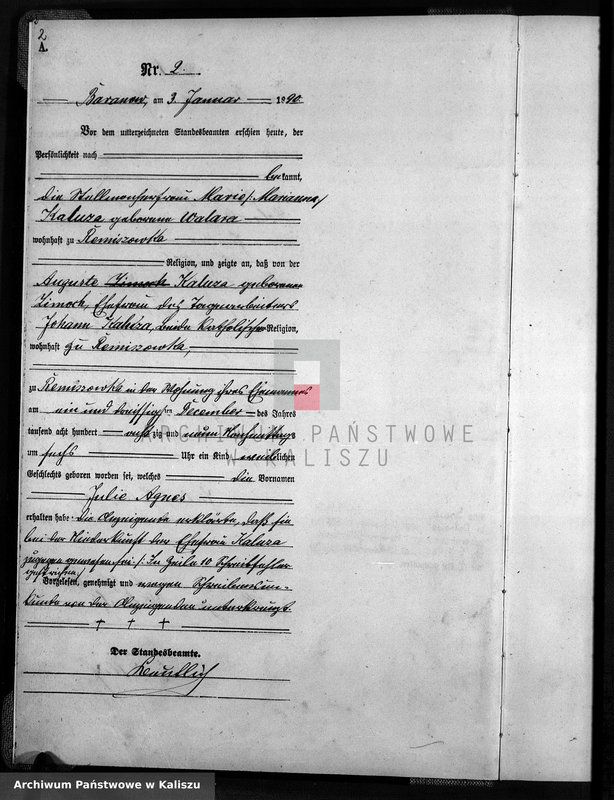 2
A.
Nr. 2.
Baranow, am 3. Januar 1890.
Vor dem unterzeichneten Standesbeamten erschien heute, der
Persönlichkeit nach
bekannt,
die Stellmacherfrau Marie /: Marianna /
Kaluza geborene Walara
wohnhaft zu Remiszowka
Religion, und zeigte an, daß von der
Auguste Zimoch Kaluza geborenen
Zimoch, Ehefrau des Tagearbeiters
Johann Kaluza, beide katholischer Religion,
wohnhaft zu Remiszowka,
zu Remiszowka in der Wohnung ihres Ehemannes
am ein und dreissigsten December des Jahres
tausend acht hundert achtzig und neun Nachmittags
um sechs Uhr ein Kind weiblichen
Geschlechts geboren worden sei, welches die Vornamen
Julie Agnes
erhalten habe. Die Anzeigende erklärte, daß sie
bei der Niederkunft der Ehefrau Kaluza
zugegen gewesen sei /: In Zeile 10 Schreibfehler
gestrichen /
Vorgelesen, genehmigt und wegen Schreibensun-
kunde von der Anzeigenden unterkreuzt.
† † †
Der Standesbeamte.
ARCHIWUM PAŃSTWOWE
W KALISZU
Archiwum Państwowe w Kaliszu